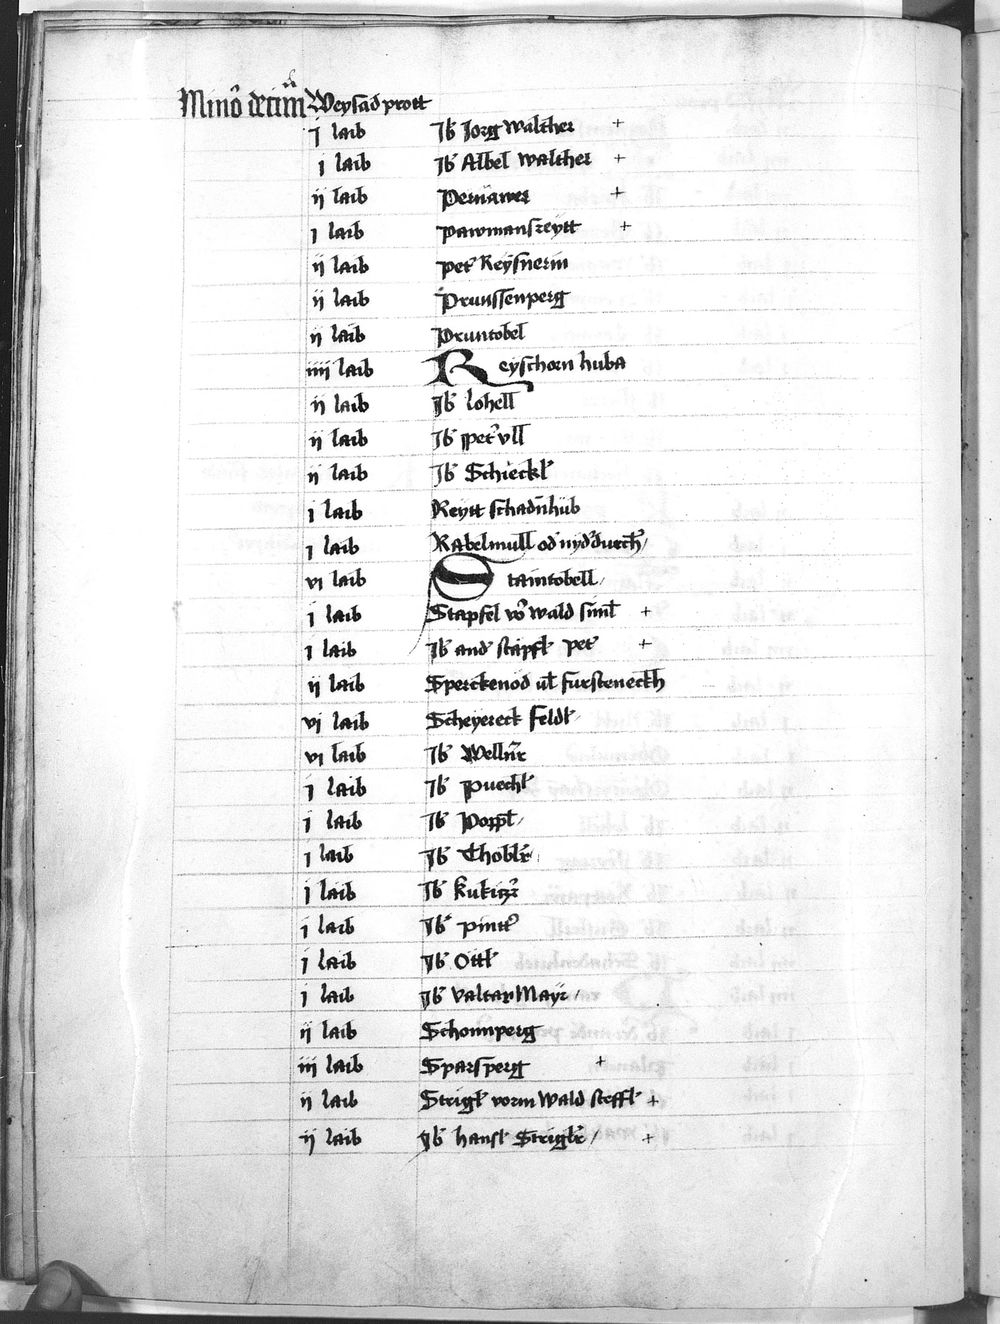 Mino decim Weysad prott
j laib Ib Jorg Walther +
j laib Ib Albel Walther +
ij laib Pernawer +
j laib Pawmansreytt +
ij laib pet Reysnerin
ij laib Prunssenperg
ij laib Pruntobel
iiij laib Reyschorn huba
ij laib Ib lohell
ij laib Ib pet vll
ij laib Ib Schieckl
j laib Reytt schadnhub
j laib Rabelmull od nyd durch
vj laib Staintobell
j laib Stapfel vor wald siml +
j laib Ib and stapfl pet +
ij laib Sperckenod vl fursteneckh
vj laib Scheyereck feldl
vj laib Ib Wellnr
j laib Ib puechl
j laib Ib Poppl
j laib Ib Thoblr
j laib Ib kukinzr
j laib Ib pintt
j laib Ib Ottl
j laib Ib valtan Mayr
ij laib Schonnperg
iij laib Sparsperg +
ij laib Strigl vorm Wald steffl +
ij laib Ib hansl Striglr +